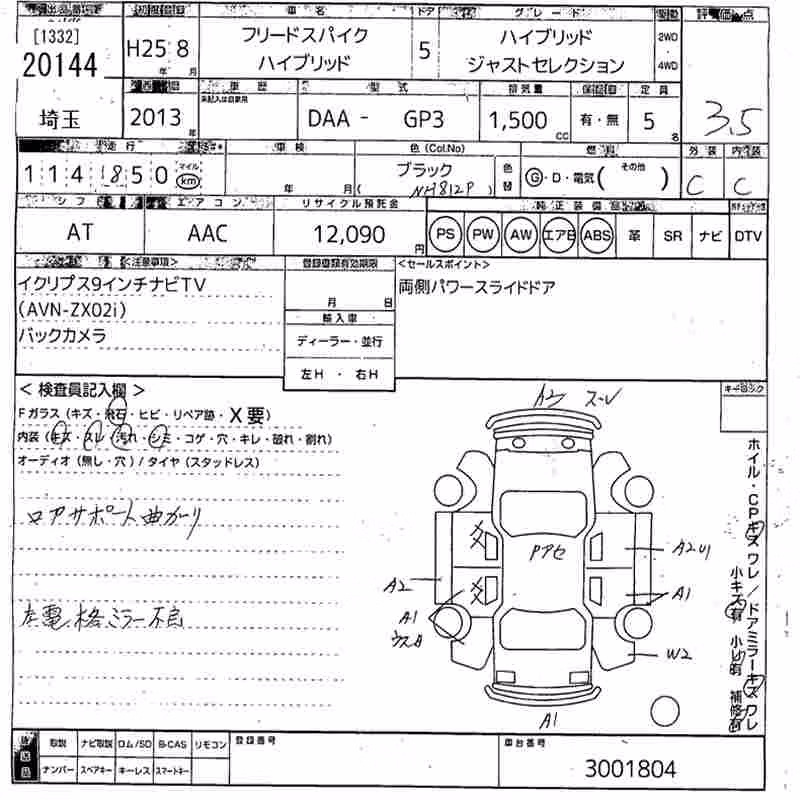 車名 ドア グレード 評価点
[1332]
20144
H25 8
年 月
フリードスパイク
ハイブリッド
5
ハイブリッド
ジャストセレクション
2WD
4WD
3.5
車歴 型式 排気量 定員
埼玉
2013
年
DAA - GP3
1,500
cc
有・無
5
名
走行 車検 色(Col.No) 燃料 外装 内装
114 850
マイル
km
年 月
ブラック
(NH812P)
色替
G・D・電気(その他 )
C C
シフト エアコン リサイクル預託金 純正装備品
AT AAC 12,090
円
PS PW AW エアB ABS 革 SR ナビ DTV
<注意事項> 登録書類有効期限 <セールスポイント>
イクリプス9インチナビTV
(AVN-ZX02i)
バックカメラ
月 日
輸入車
ディーラー・並行
左H ・ 右H
両側パワースライドドア
<検査員記入欄>
Fガラス(キズ・飛石・ヒビ・リペア跡・X要)
内装(キズ・スレ・汚れ・シミ・コゲ・穴・キレ・破れ・割れ)
オーディオ(無し・穴)/タイヤ(スタッドレス)
ロアサポート曲がり
左電格ミラー不良
キーロック
A2 スレ
A2U1
A2
A1
A1
W2
A1
ホイル・CPキズ ワレ/ドアミラーキズ ワレ
小キズ有 小凹有 補修有
取説 ナビ取説 ロム/SD B-CAS リモコン
ナンバー スペアキー キーレス スマートキー
登録番号
車台番号
3001804